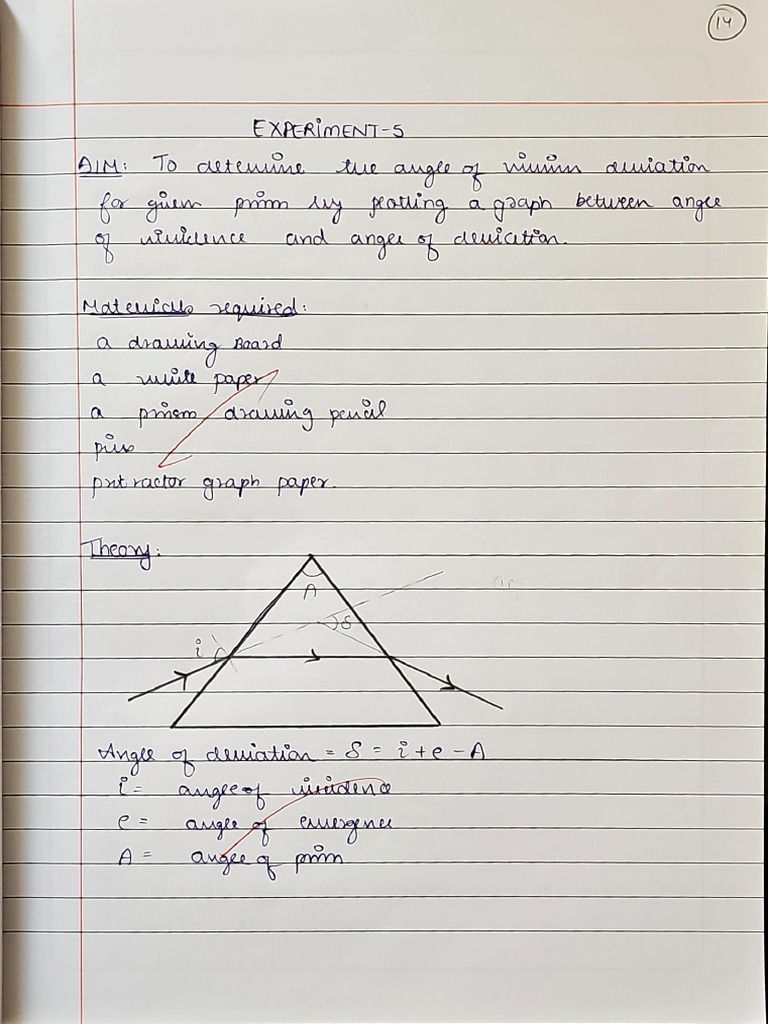 14
EXPERIMENT-5
AIM: To determine the angle of minim deviation
for given prism by plotting a graph between angle
of incidence and angle of deviation.
Materials required:
a drawing Board
a white paper
a prism drawing pencil
pins
protractor graph paper.
Theory:
A
i δ
Angle of deviation = δ = i + e - A
i = angle of incidence
e = angle of emergence
A = angle of prism